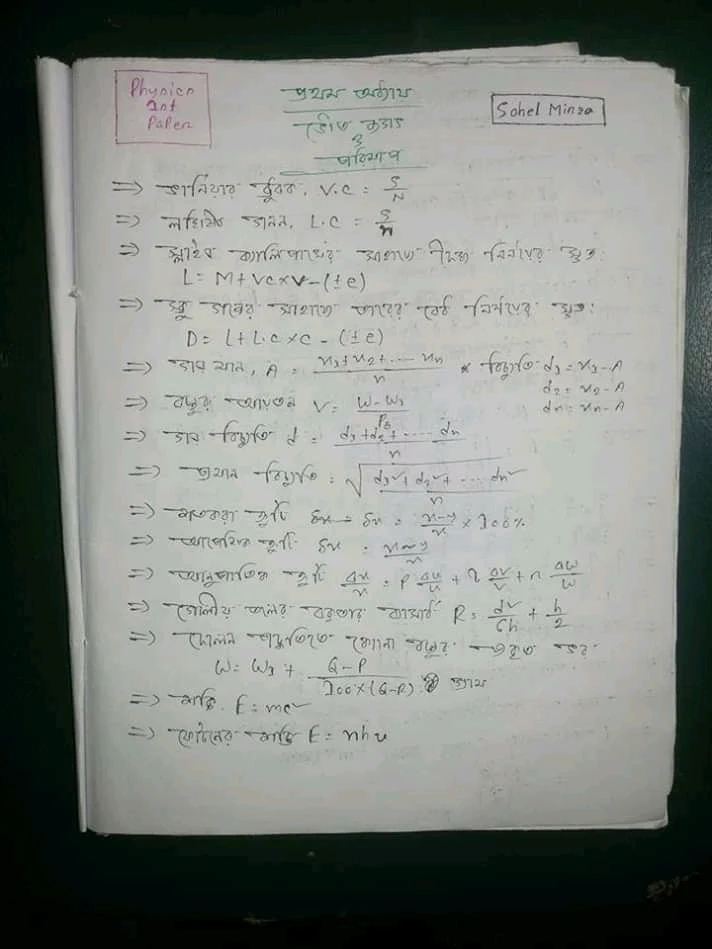 Physics
1st
Paper
প্রথম অধ্যায়
Sohel Mirza
ভৌত জগত
ও
পরিমাপ
⇒ ভার্নিয়ার ধ্রুবক, V.C = S/N
⇒ লঘিষ্ঠ গণন, L.C = S/n
⇒ স্লাইড ক্যালিপার্সের সাহায্যে দৈর্ঘ্য নির্ণয়ের সূত্র:
L = M + VC × V - (± e)
⇒ স্ক্রু গজের সাহায্যে তারের নির্ণয়ের সূত্র:
D = L + L.C × C - (± e)
⇒ গড় মান, A = x₁+x₂+...xₙ/n * বিচ্যুতি d₁ = x₁-A
d₂ = x₂-A
dₙ = xₙ-A
⇒ বস্তুর আয়তন V = W-W₁/
⇒ গড় বিচ্যুতি d = d₁+d₂+.....dₙ/n
⇒ প্রমাণ বিচ্যুতি = √d₁²+d₂²+...dₙ²/n
⇒ শতকরা ত্রুটি δx = x-y/x × 100%
⇒ আপেক্ষিক ত্রুটি δx = x~y/x
⇒ আনুপাতিক ত্রুটি Δx/x = p Δu/u + q Δv/v + r Δw/w
⇒ গোলীয় তলের বক্রতার ব্যাসার্ধ R = d²/6h + h/2
⇒ দোলন পদ্ধতিতে কোনো বস্তুর প্রকৃত ভর
W = W₁ + Q-P/100×(Q-R) গ্রাম
⇒ শক্তি, E = mc²
⇒ ফোটনের শক্তি E = nhυ